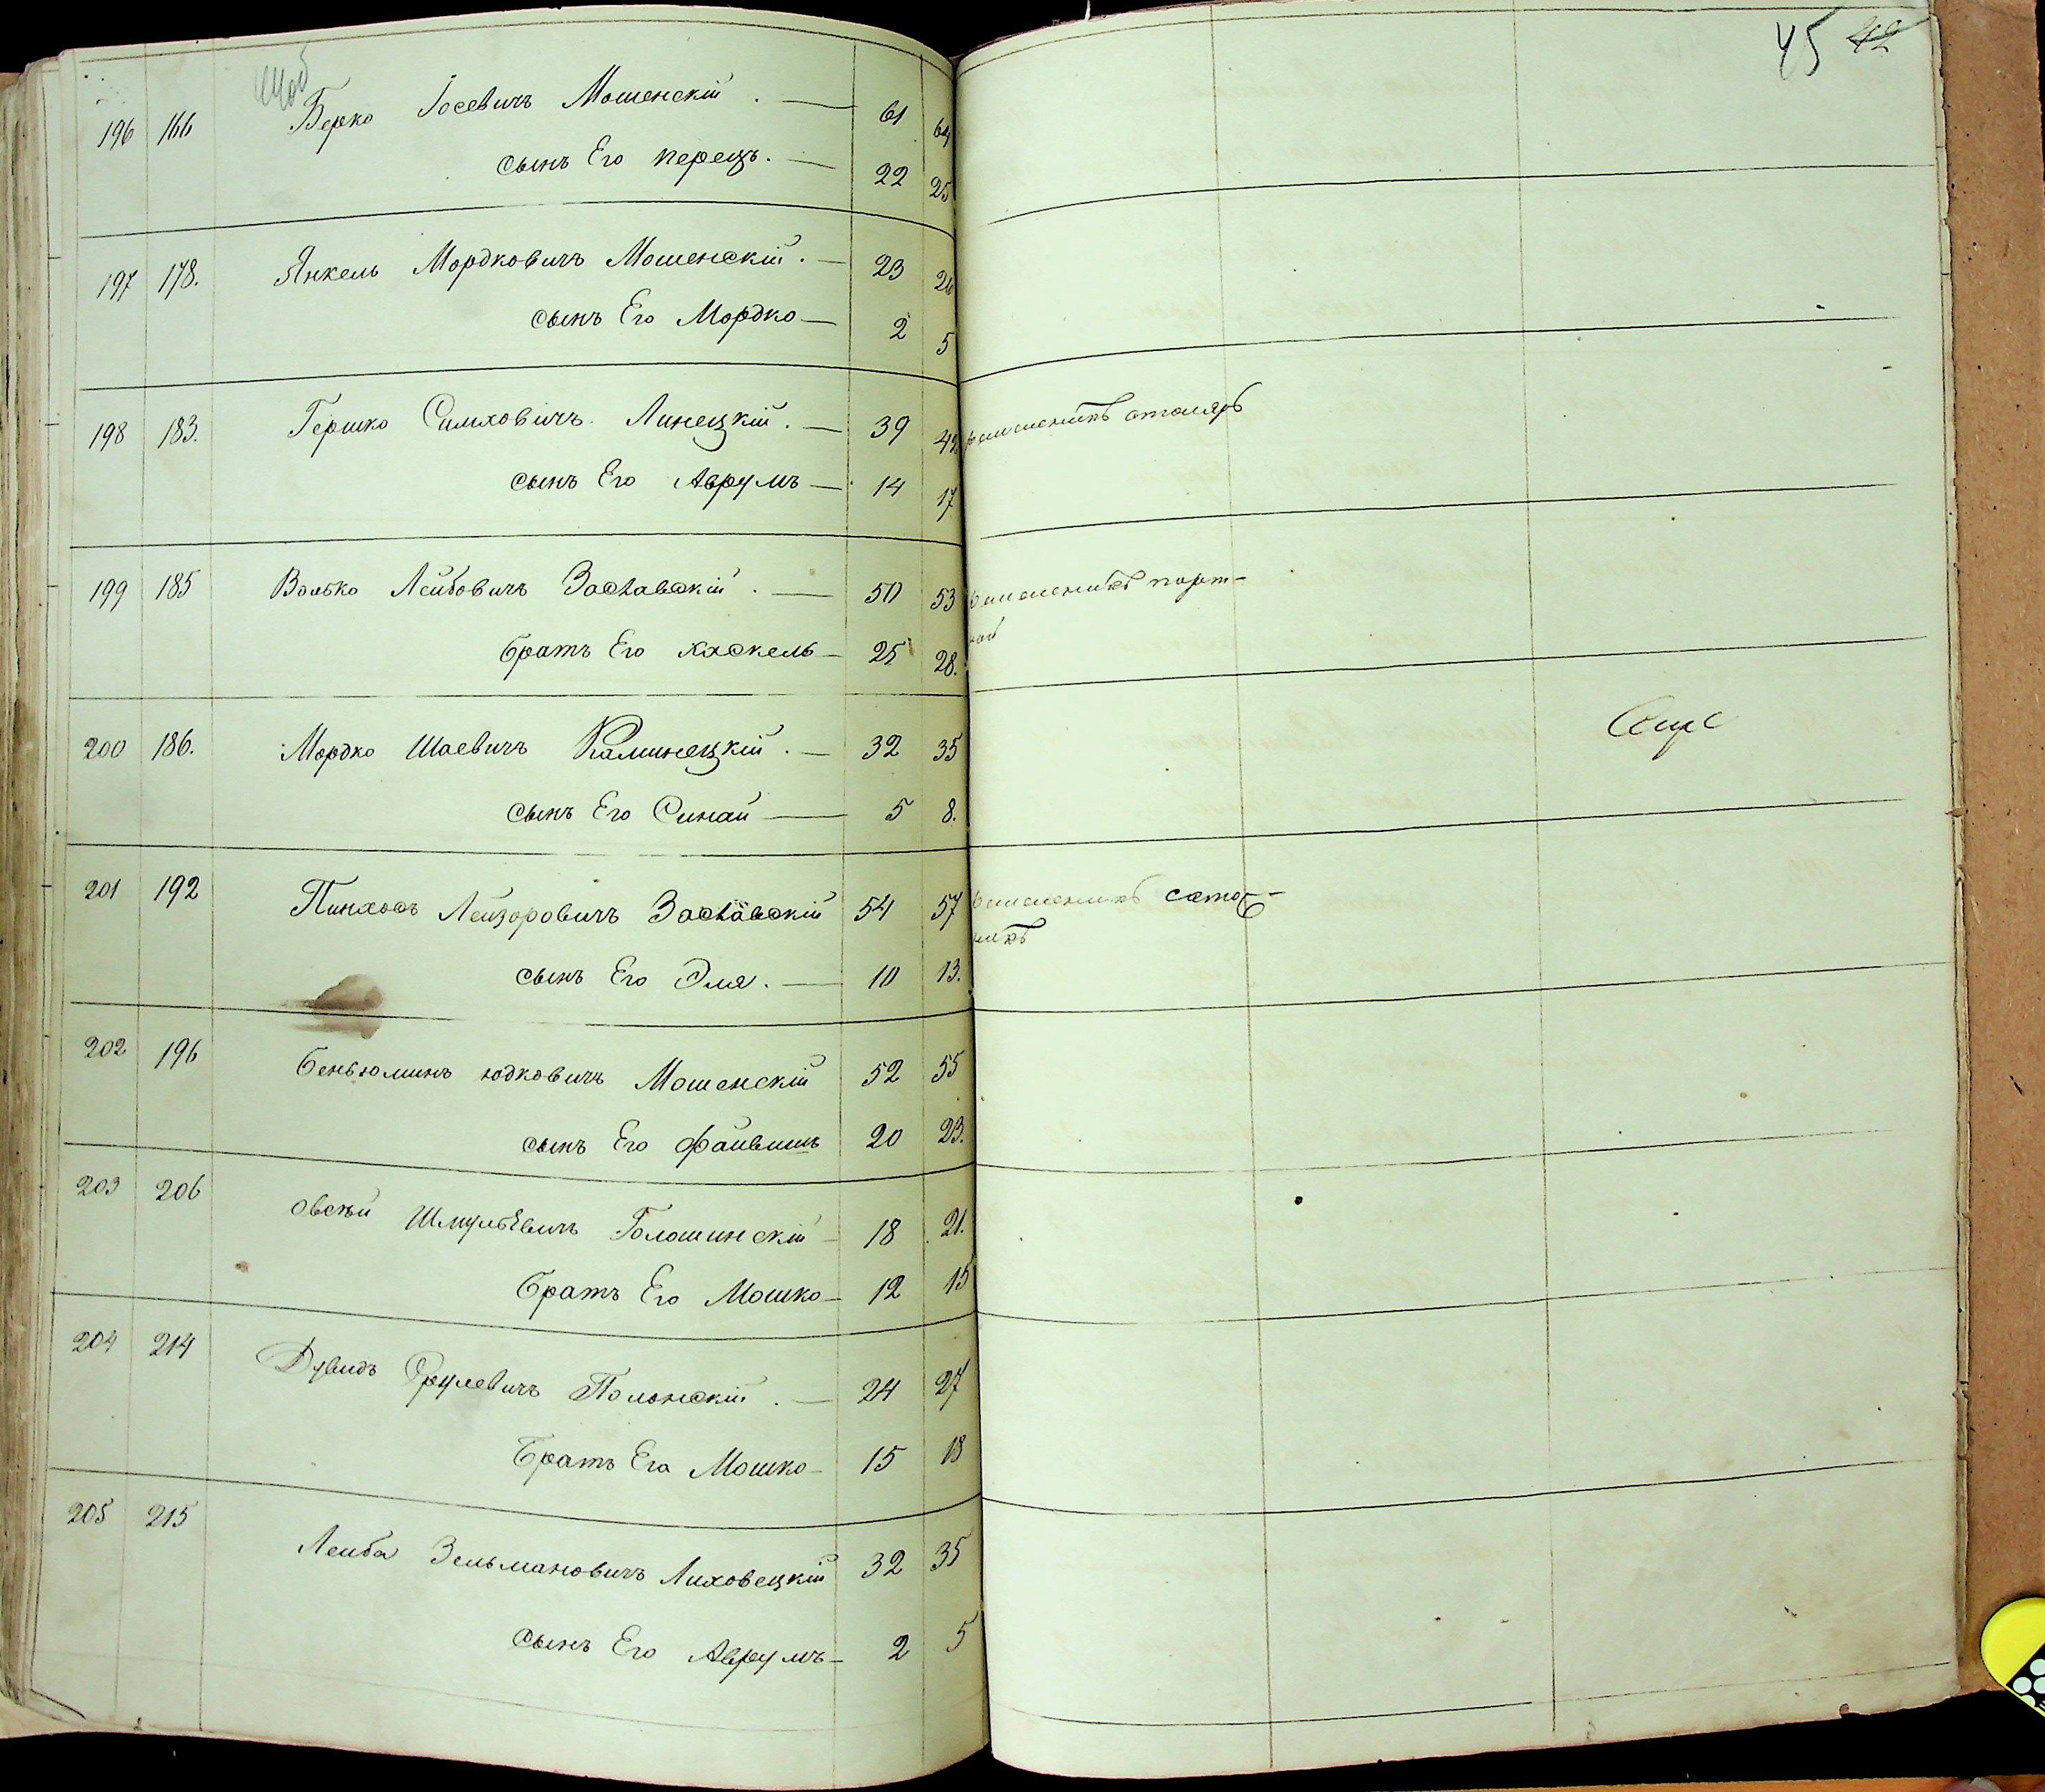 45 42
196 166 Берко Іосевичъ Мошенскій . — 61 64
сынъ Его перецъ. — 22 25
197 178. Янкель Мордковичъ Мошенскій . — 23 26
сынъ Его Мордко — 2 5
198 183. Гершко Симховичъ Линецкій . — 39 42 столяръ
сынъ Его Аврумъ — 14 17
199 185 Волько Лейбовичъ Заславскій . — 50 53 порт-
ной
братъ Его Хаскель — 25 28.
200 186. Мордко Шаевичъ Каминецкій . — 32 35
сынъ Его Синай — 5 8.
201 192 Пинхосъ Лейзоровичъ Заславскій 54 57 сапож-
никъ
сынъ Его Эля . — 10 13.
202 196 беньюминъ юдковичъ Мошенскій 52 55
сынъ Его файвишъ 20 23.
203 206 овсѣй Шмульевичъ Голошинскій — 18 21.
братъ Его Мошко — 12 15
204 214 Дувидъ Срулевичъ Полонскій . — 24 27
братъ Его Мошко — 15 18
205 215 Лейба Зельмановичъ Лиховецкій 32 35
сынъ Его Аврумъ — 2 5